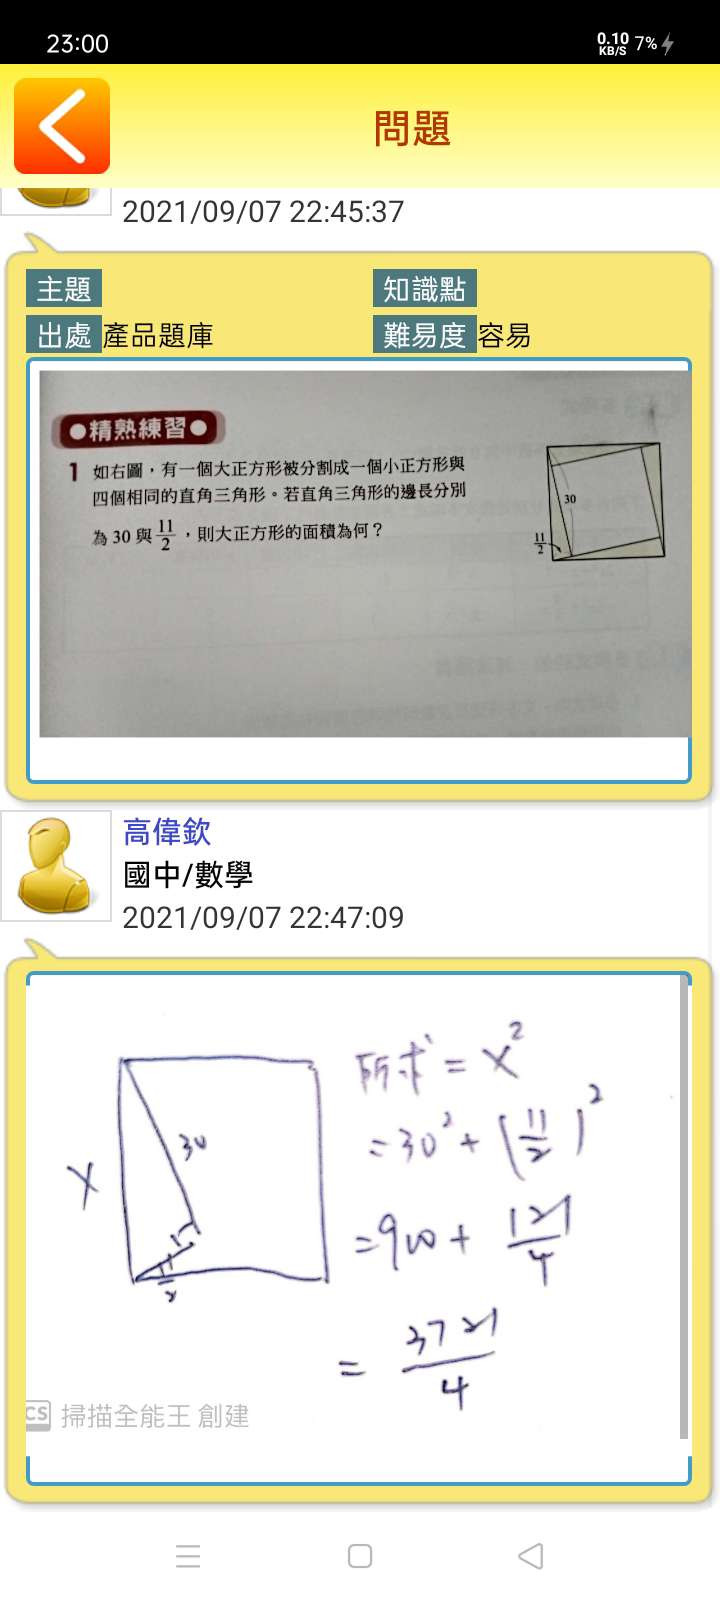 23:00
0.10
KB/S
7%
問題
2021/09/07 22:45:37
主題
知識點
出處 產品題庫
難易度 容易
●精熟練習●
1 如右圖，有一個大正方形被分割成一個小正方形與
四個相同的直角三角形。若直角三角形的邊長分別
為 30 與 11/2，則大正方形的面積為何？
30
11/2
高偉欽
國中/數學
2021/09/07 22:47:09
X
30
11/2
所求 = X²
= 30² + (11/2)²
= 900 + 121/4
= 3721/4
CS 掃描全能王 創建